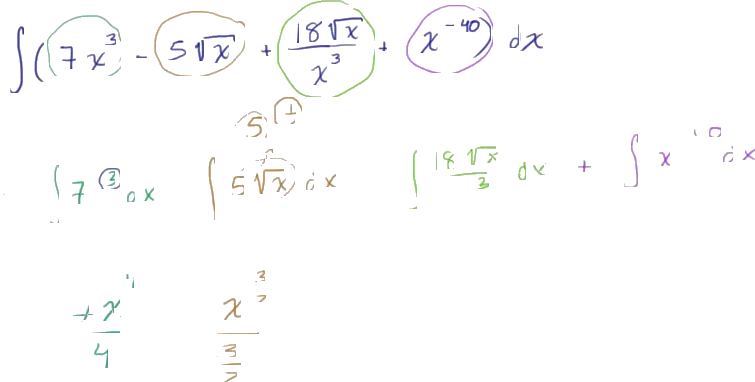 ∫(7x³ - 5√x + 18√x/x³ + x⁻⁴⁰) dx
5
∫7 ³ dx ∫5√x dx ∫18√x/3 dx + ∫x dx
x⁴/4 x^(3/2)/(3/2)